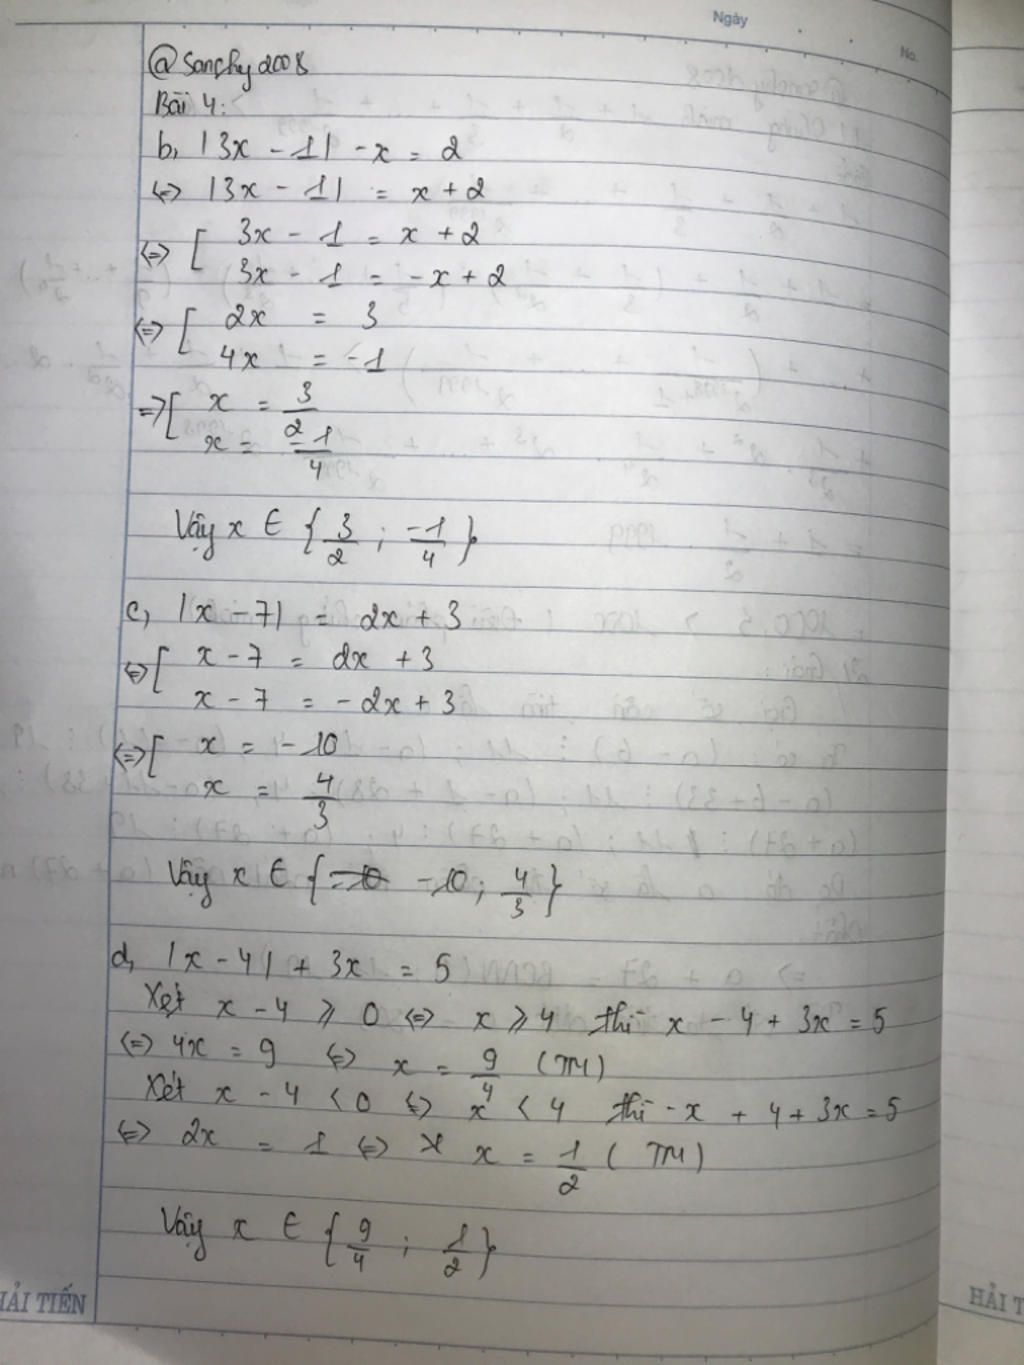 Ngày
No.
@sanchy2008
Bài 4:
b, |3x - 1| - x = 2
<=> |3x - 1| = x + 2
<=> [ 3x - 1 = x + 2
3x - 1 = - x + 2
<=> [ 2x = 3
4x = -1
=> [ x = 3/2
x = -1/4
Vậy x ∈ { 3/2 ; -1/4 }
c, |x - 7| = 2x + 3
<=> [ x - 7 = 2x + 3
x - 7 = - 2x + 3
<=> [ x = - 10
x = 4/3
Vậy x ∈ { -10 ; 4/3 }
d, |x - 4| + 3x = 5
Xét x - 4 ⩾ 0 <=> x ⩾ 4 thì x - 4 + 3x = 5
<=> 4x = 9 <=> x = 9/4 (TM)
Xét x - 4 < 0 <=> x < 4 thì - x + 4 + 3x = 5
<=> 2x = 1 <=> x = 1/2 ( TM )
Vậy x ∈ { 9/4 ; 1/2 }
HẢI TIẾN
HẢI T